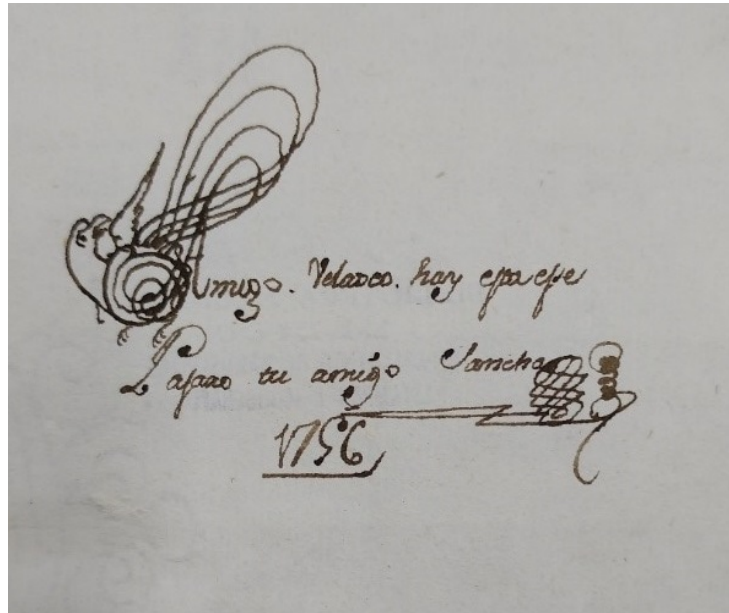 Amigo. Velasco. hay esta este
Pajaro tu amigo Sancho
1756